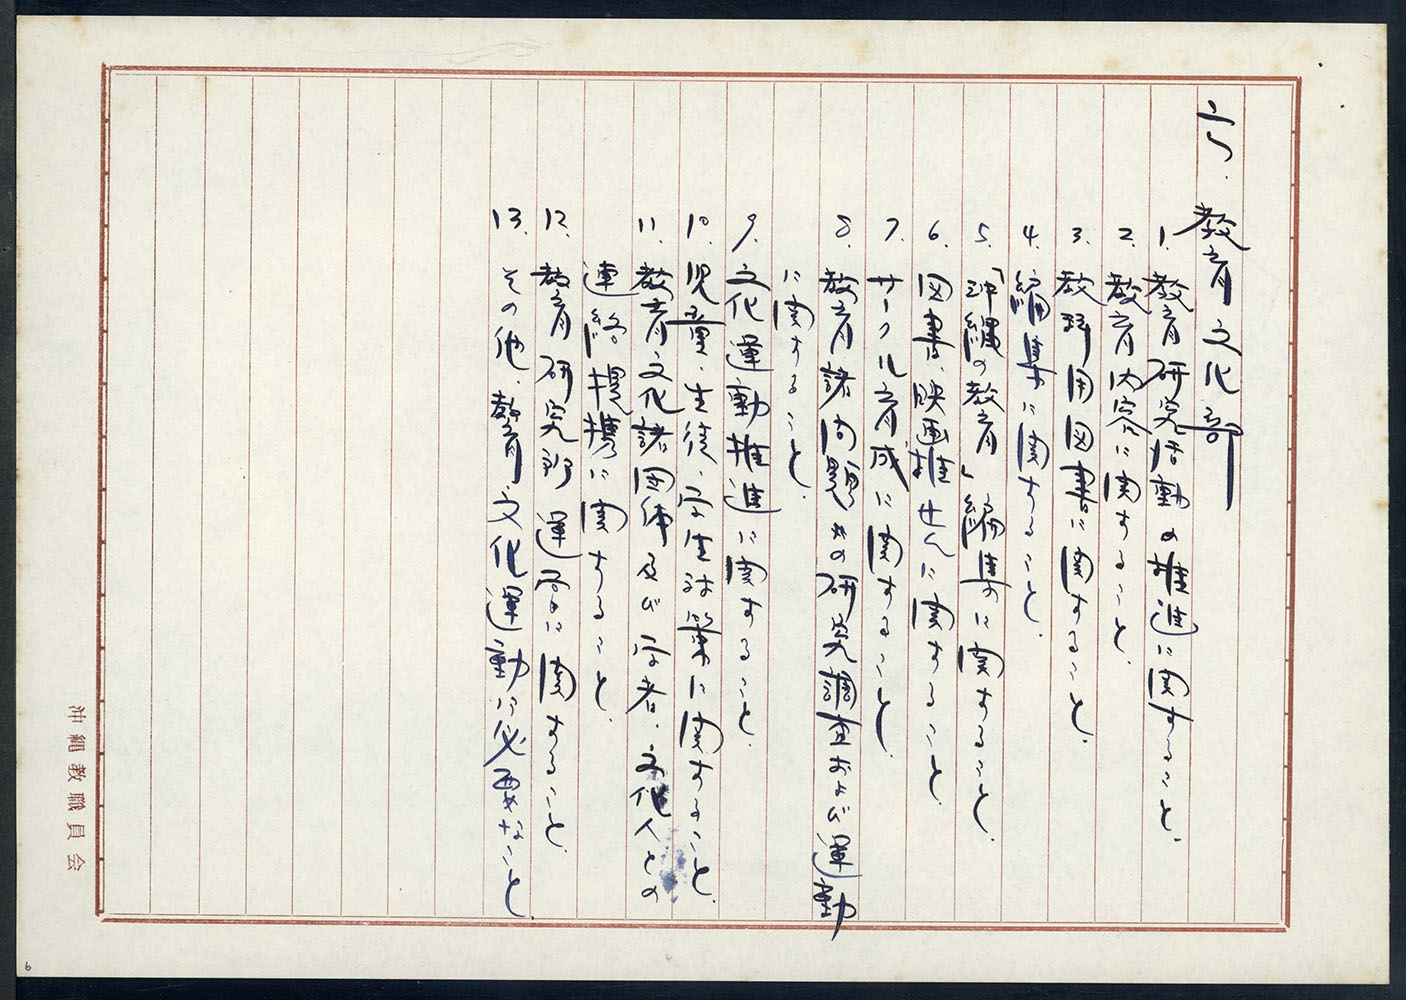 六、教育文化部
1. 教育研究活動の推進に関すること。
2. 教育内容に関すること。
3. 教科用図書に関すること。
4. 編集に関すること。
5. 「沖縄の教育」編集に関すること。
6. 図書、映画推せんに関すること。
7. サークル育成に関すること。
8. 教育諸問題の研究調査および運動
に関すること。
9. 文化運動推進に関すること。
10. 児童、生徒、学生対策に関すること。
11. 教育文化諸団体及び学者、文化人との
連絡提携に関すること。
12. 教育研究所運営に関すること。
13. その他、教育、文化運動に必要なこと。
沖縄教職員会
6